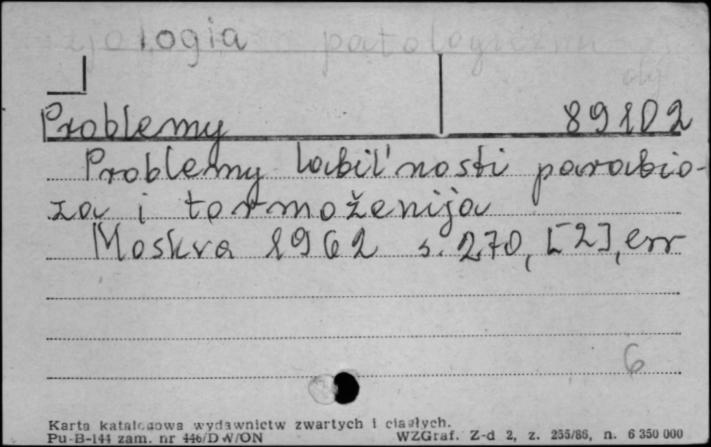 logia patologiczna
Problemy 89102
Problemy labil'nosti parabio-
za i tormoženija
Moskva 1962 s. 270, [2], err
6
Karta katalogowa wydawnictw zwartych i ciągłych.
Pu-B-144 zam. nr 446/DW/ON WZGraf. Z-d 2, z. 255/86, n. 6 350 000